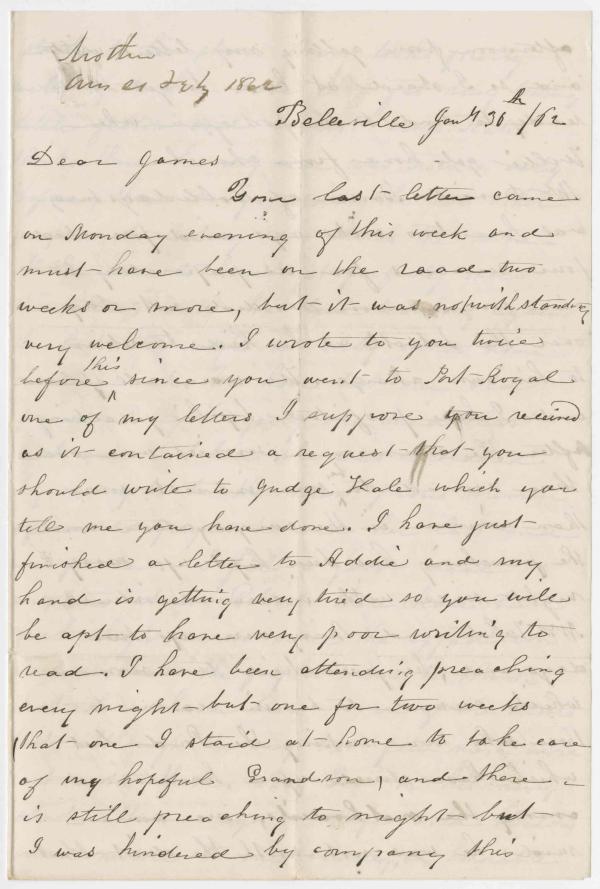 Mother
Ans 21 Feby 1862
Belleville Jany 30th /62
Dear James
Your last letter came
on Monday evening of this week and
must have been on the road two
weeks or more, but it was notwithstanding
very welcome. I wrote to you twice
before this since you went to Port Royal
one of my letters I suppose you received
as it contained a request that you
should write to Judge Hale which you
tell me you have done. I have just
finished a letter to Addie and my
hand is getting very tired so you will
be apt to have very poor writing to
read. I have been attending preaching
every night but one for two weeks
that one I staid at home to take care
of my hopeful Grandson, and there
is still preaching to night but
I was hindered by company this